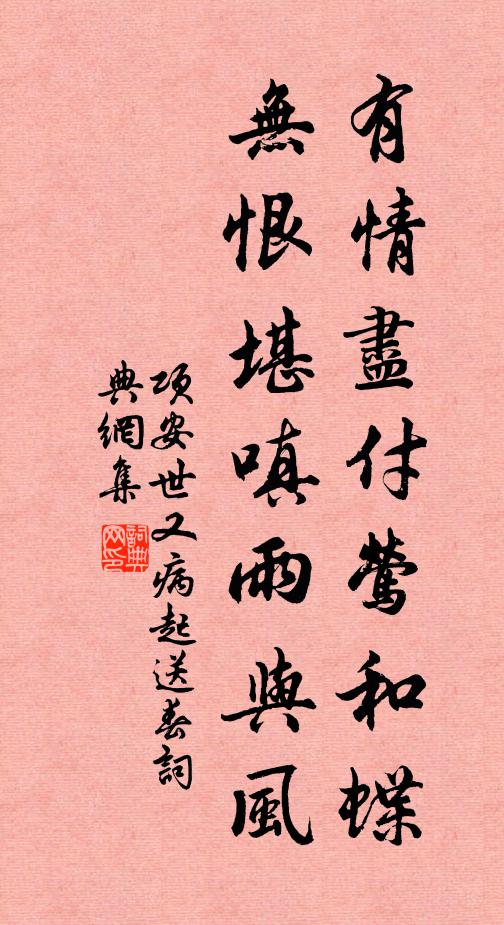 有情盡付鶯和蝶
無恨堪嗔雨與風
項安世又病起送春詞
典網集
詞典
网印